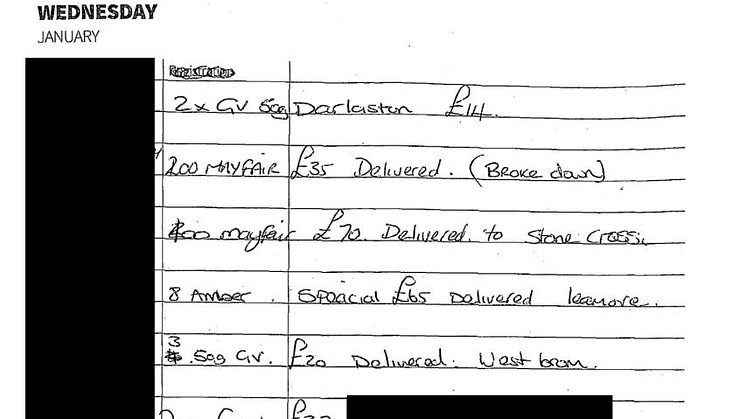 WEDNESDAY
JANUARY
2x GV 50g Darlaston £14.
200 MAYFAIR £35 Delivered. (Broke down)
400 mayfair £70. Delivered. to Stone CROSS.
8 Amber. Spacial £65 Delivered leamore.
3 .50g GV. £20 Delivered. West brom.